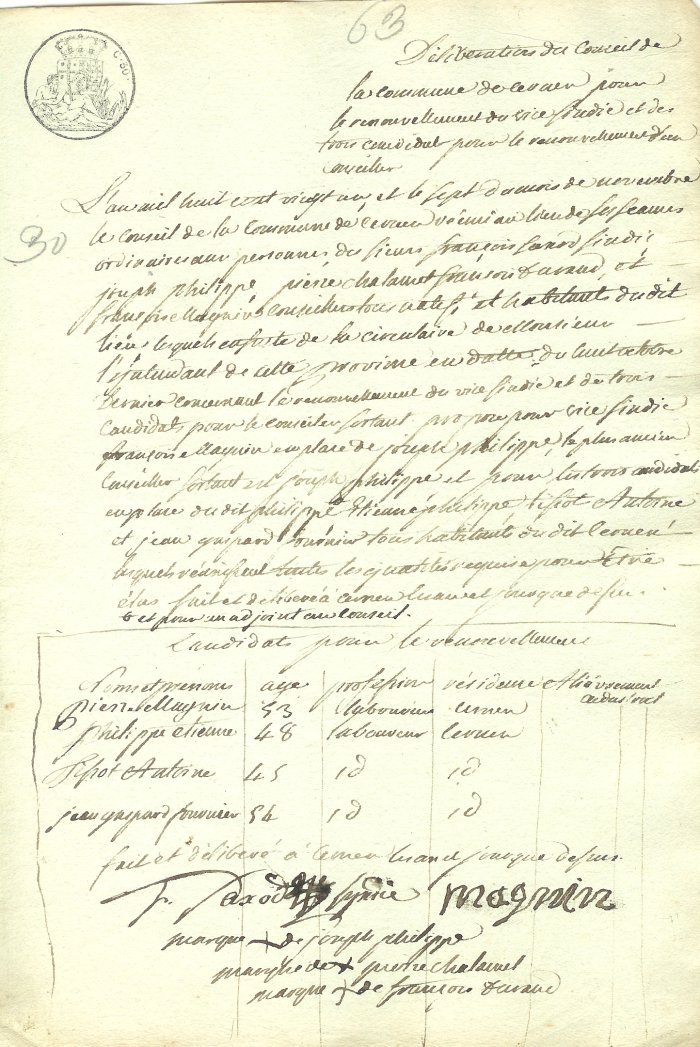 63
C. 60.
Déliberation du Conseil de
la Commune de Cernex pour
le renouvellement du vice sindic et des
trois candidat pour le renouvellement d'un
Conseiller
30
L'an mil huit cent vingt un et le sept du mois de novembre
le Conseil de la Commune de Cernex réuni au lieu de ses séances
ordinaires aux personnes des sieurs françois sindic
joseph philippe, pierre Chalamet françois Durand, et
françois Magnin Conseillers tous natifs et habitants du dit
lieu, lesquels ensuite de la Circulaire de Monsieur
l'intendant de cette province en datte du huit octobre
dernier concernant le renouvellement du vice sindic et de trois
candidats pour le conseiller sortant propose pour vice sindic
françois Magnin en place de joseph philippe, le plus ancien
Conseiller sortant est joseph philippe et pour les trois candidats
en place du dit philippe Etienne philippe tissot Antoine
et jean gaspard tous habitants du dit Cernex
lesquels réunissent toutes les qualités requise pour Etre
élus fait et délibéré à cernex l'an et jour que dessus
et pour un adjoint au Conseil.
Candidats pour le renouvellement
Noms et prénoms age profession résidence cadastral
pierre Magnin 53 laboureur cernex
philippe etienne 48 laboureur Cernex
tissot Antoine 45 id id
jean gaspard fournier 54 id id
fait et délibéré à Cernex l'an et jour que dessus.
F. sindic Magnin
marque + de joseph philippe
marque de + pierre chalamet
marque + de françois durand